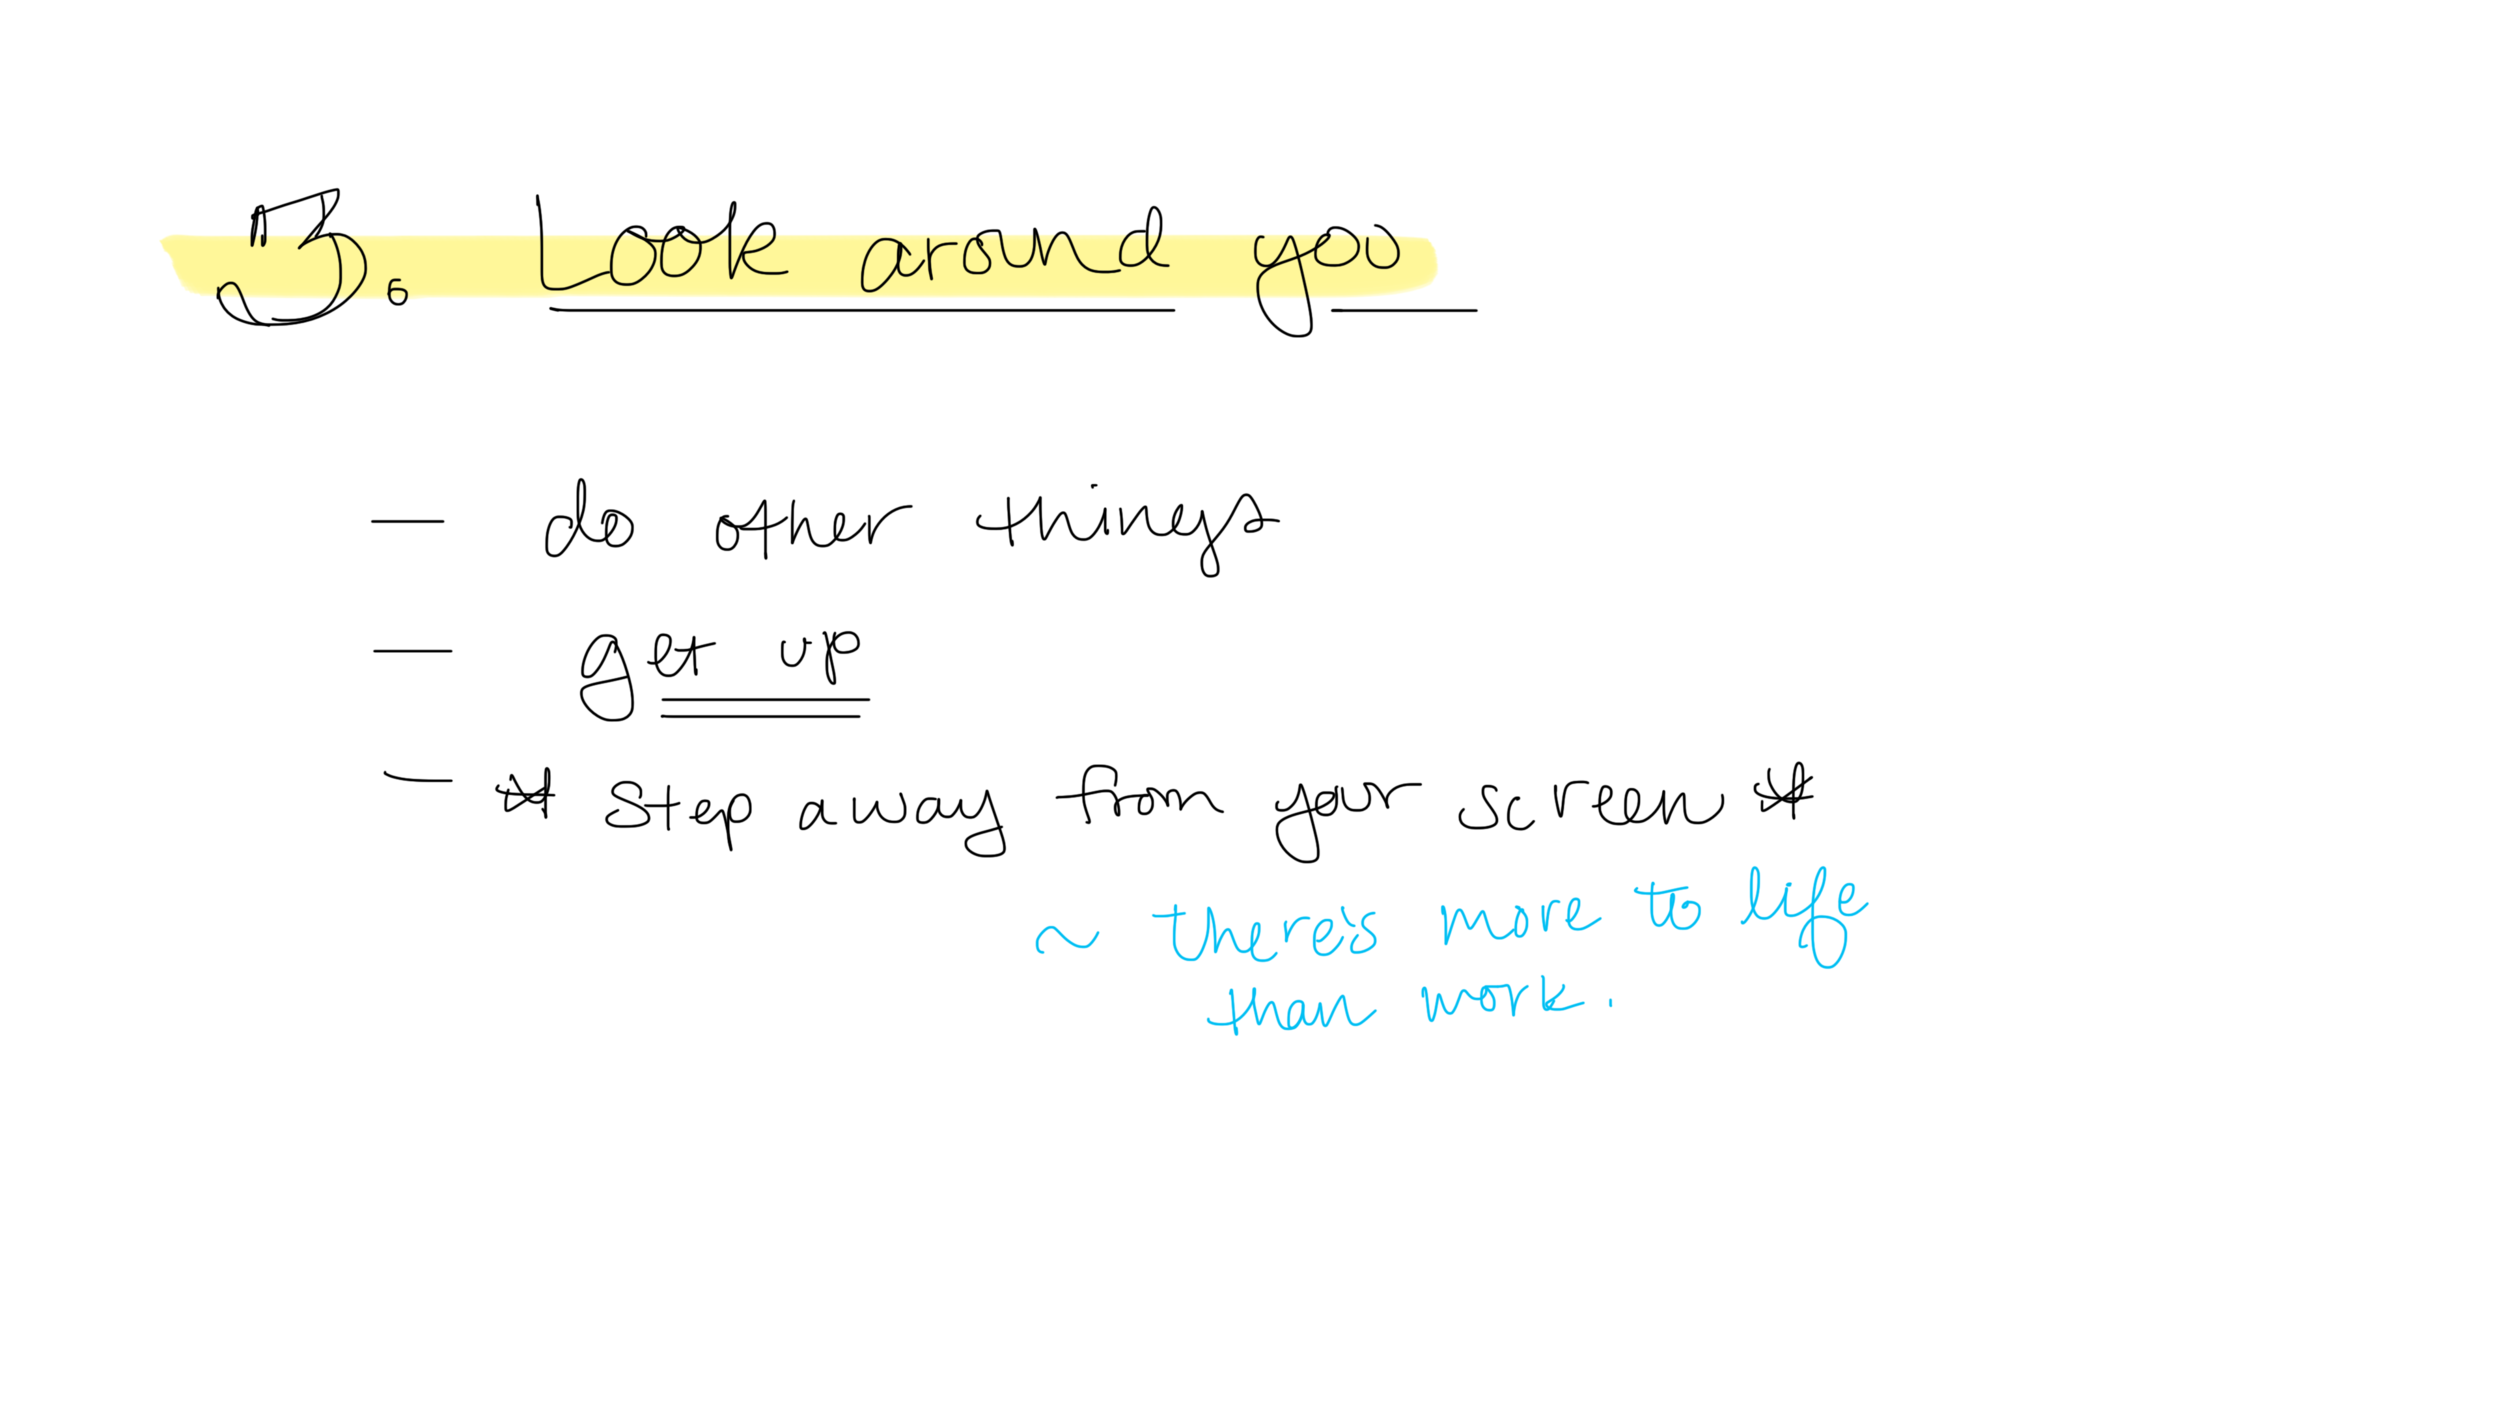 3. Look around you
— do other things
— get up
— * Step away from your screen *
~ there's more to life
than work.